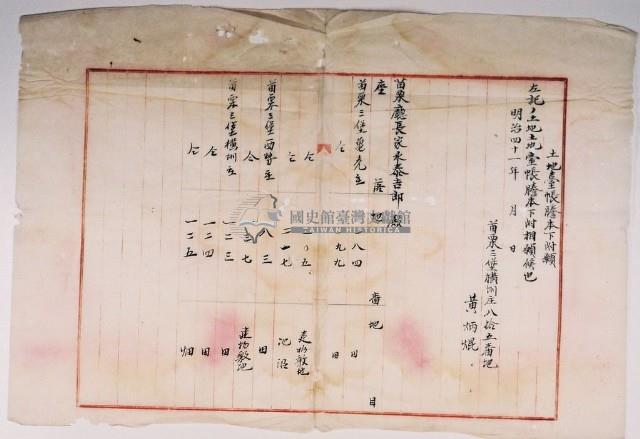 土地臺帳謄本下附願
左記ノ土地土地臺帳謄本下附相願候也
明治四十一年 月 日
苗栗三堡橫圳庄八拾五番地
黃炳焜
苗栗廳長家永泰吉郎殿
庄 落 地 番 地 目
苗栗三堡 八四 田
仝 九九 田
仝 建物敷地
仝 二一七 池沼
苗栗三堡西勢庄 八三 田
仝 七 建物敷地
苗栗三堡橫圳庄 一二三 田
仝 一二四 田
仝 一二五 畑
國史館臺灣文獻館
TAIWAN HISTORICA